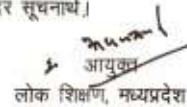 र सूचनार्थ।
आयुक्त
लोक शिक्षण, मध्यप्रदेश